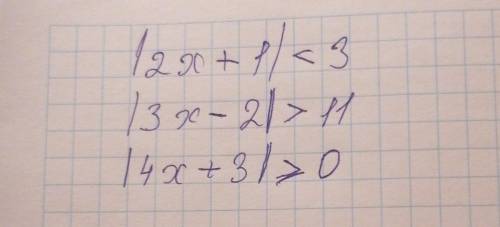 |2x + 1| < 3
|3x - 2| > 11
|4x + 3| ⩾ 0